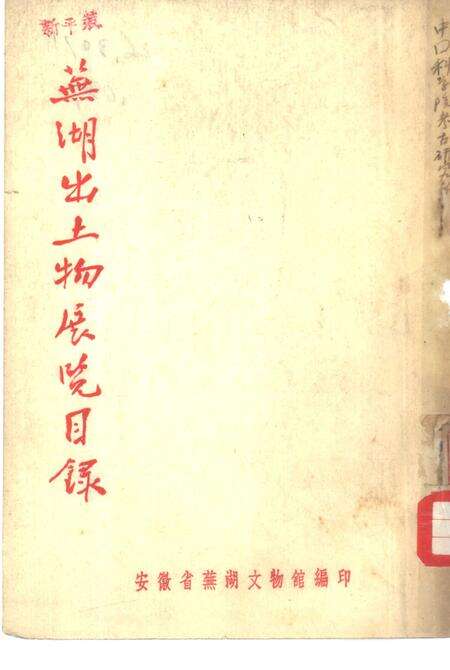 蕪湖出土物展览目録
安徽省蕪湖文物館編印
科学院考古研究